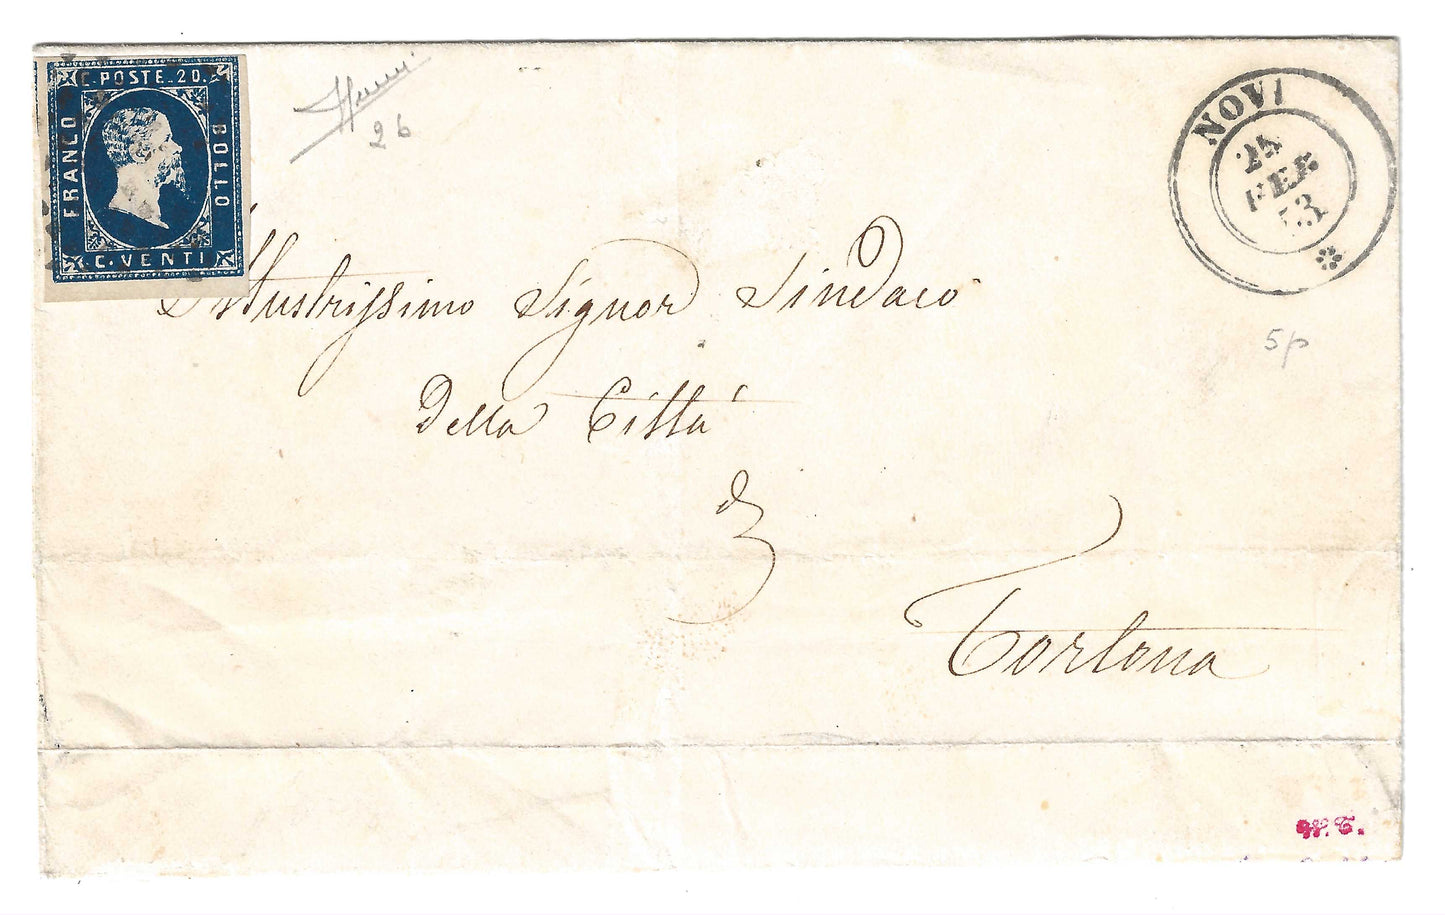 C. POSTE. 20.
FRANCO
BOLLO
C. VENTI
2 b
NOVI
FEB
53
5/p
Illustrissimo Signor Sindaco
Della Città
di
Tortona